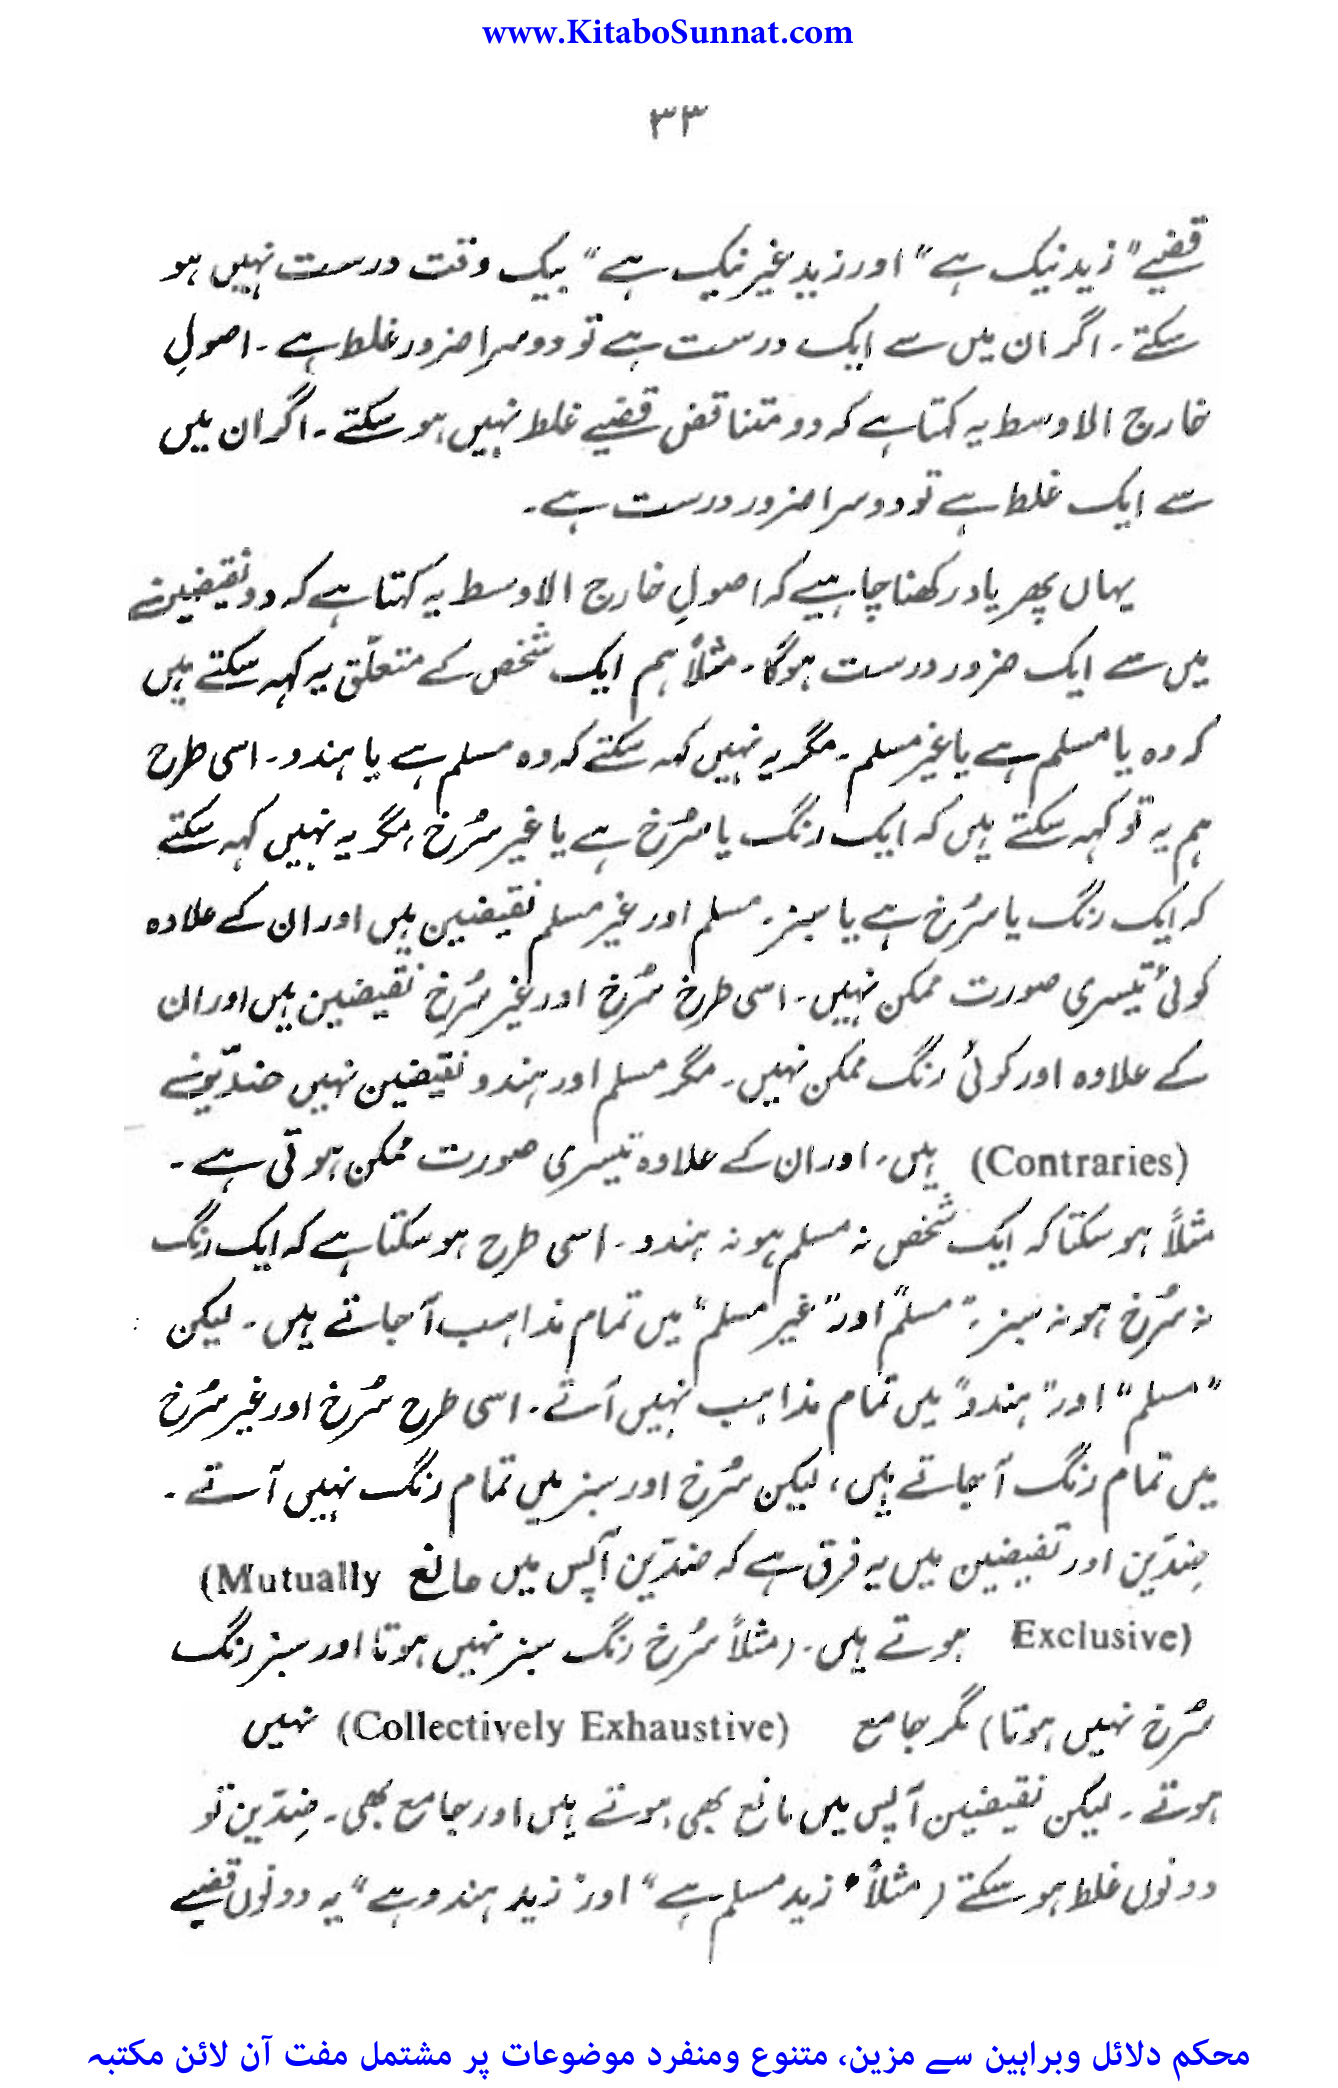 www.KitaboSunnat.com
۳۳
قضیے ”زید نیک ہے“ اور زید غیر نیک ہے“ بیک وقت درست نہیں ہو
سکتے۔ اگر ان میں سے ایک درست ہے تو دوسرا ضرور غلط ہے۔ اصولِ
خارج الاوسط یہ کہتا ہے کہ دو متناقض قضیے غلط نہیں ہو سکتے۔ اگر ان میں
سے ایک غلط ہے تو دوسرا ضرور درست ہے۔
یہاں پھر یاد رکھنا چاہیے کہ اصولِ خارج الاوسط یہ کہتا ہے کہ دو نقیضین
میں سے ایک ضرور درست ہوگا۔ مثلاً ہم ایک شخص کے متعلّق یہ کہہ سکتے ہیں
کہ وہ یا مسلم ہے یا غیر مسلم۔ مگر یہ نہیں کہہ سکتے کہ وہ مسلم ہے یا ہندو۔ اسی طرح
ہم یہ تو کہہ سکتے ہیں کہ ایک رنگ یا سُرخ ہے یا غیر سُرخ، مگر یہ نہیں کہہ سکتے
کہ ایک رنگ یا سُرخ ہے یا سبز۔ مسلم اور غیر مسلم نقیضین ہیں اور ان کے علاوہ
کوئی تیسری صورت ممکن نہیں۔ اسی طرح سُرخ اور غیر سُرخ نقیضین ہیں اور ان
کے علاوہ اور کوئی رنگ ممکن نہیں۔ مگر مسلم اور ہندو نقیضین نہیں ضدّین
(Contraries) ہیں، اور ان کے علاوہ تیسری صورت ممکن ہوتی ہے۔
مثلاً ہو سکتا کہ ایک شخص نہ مسلم ہو نہ ہندو۔ اسی طرح ہو سکتا ہے کہ ایک رنگ
نہ سُرخ ہو نہ سبز۔ ”مسلم“ اور ”غیر مسلم“ میں تمام مذاہب آ جاتے ہیں۔ لیکن
”مسلم“ اور ”ہندو“ میں تمام مذاہب نہیں آتے۔ اسی طرح سُرخ اور غیر سُرخ
میں تمام رنگ آ جاتے ہیں، لیکن سُرخ اور سبز میں تمام رنگ نہیں آتے۔
ضِدّین اور نقیضین میں یہ فرق ہے کہ ضدّین آپس میں مانع (Mutually
Exclusive) ہوتے ہیں۔ (مثلاً سُرخ رنگ سبز نہیں ہوتا اور سبز رنگ
سُرخ نہیں ہوتا) مگر جامع (Collectively Exhaustive) نہیں
ہوتے۔ لیکن نقیضین آپس میں مانع بھی ہوتے ہیں اور جامع بھی۔ ضِدّین تو
دونوں غلط ہو سکتے (مثلاً ”زید مسلم ہے“ اور ”زید ہندو ہے“ یہ دونوں قضیے
محکم دلائل وبراہین سے مزین، متنوع ومنفرد موضوعات پر مشتمل مفت آن لائن مکتبہ